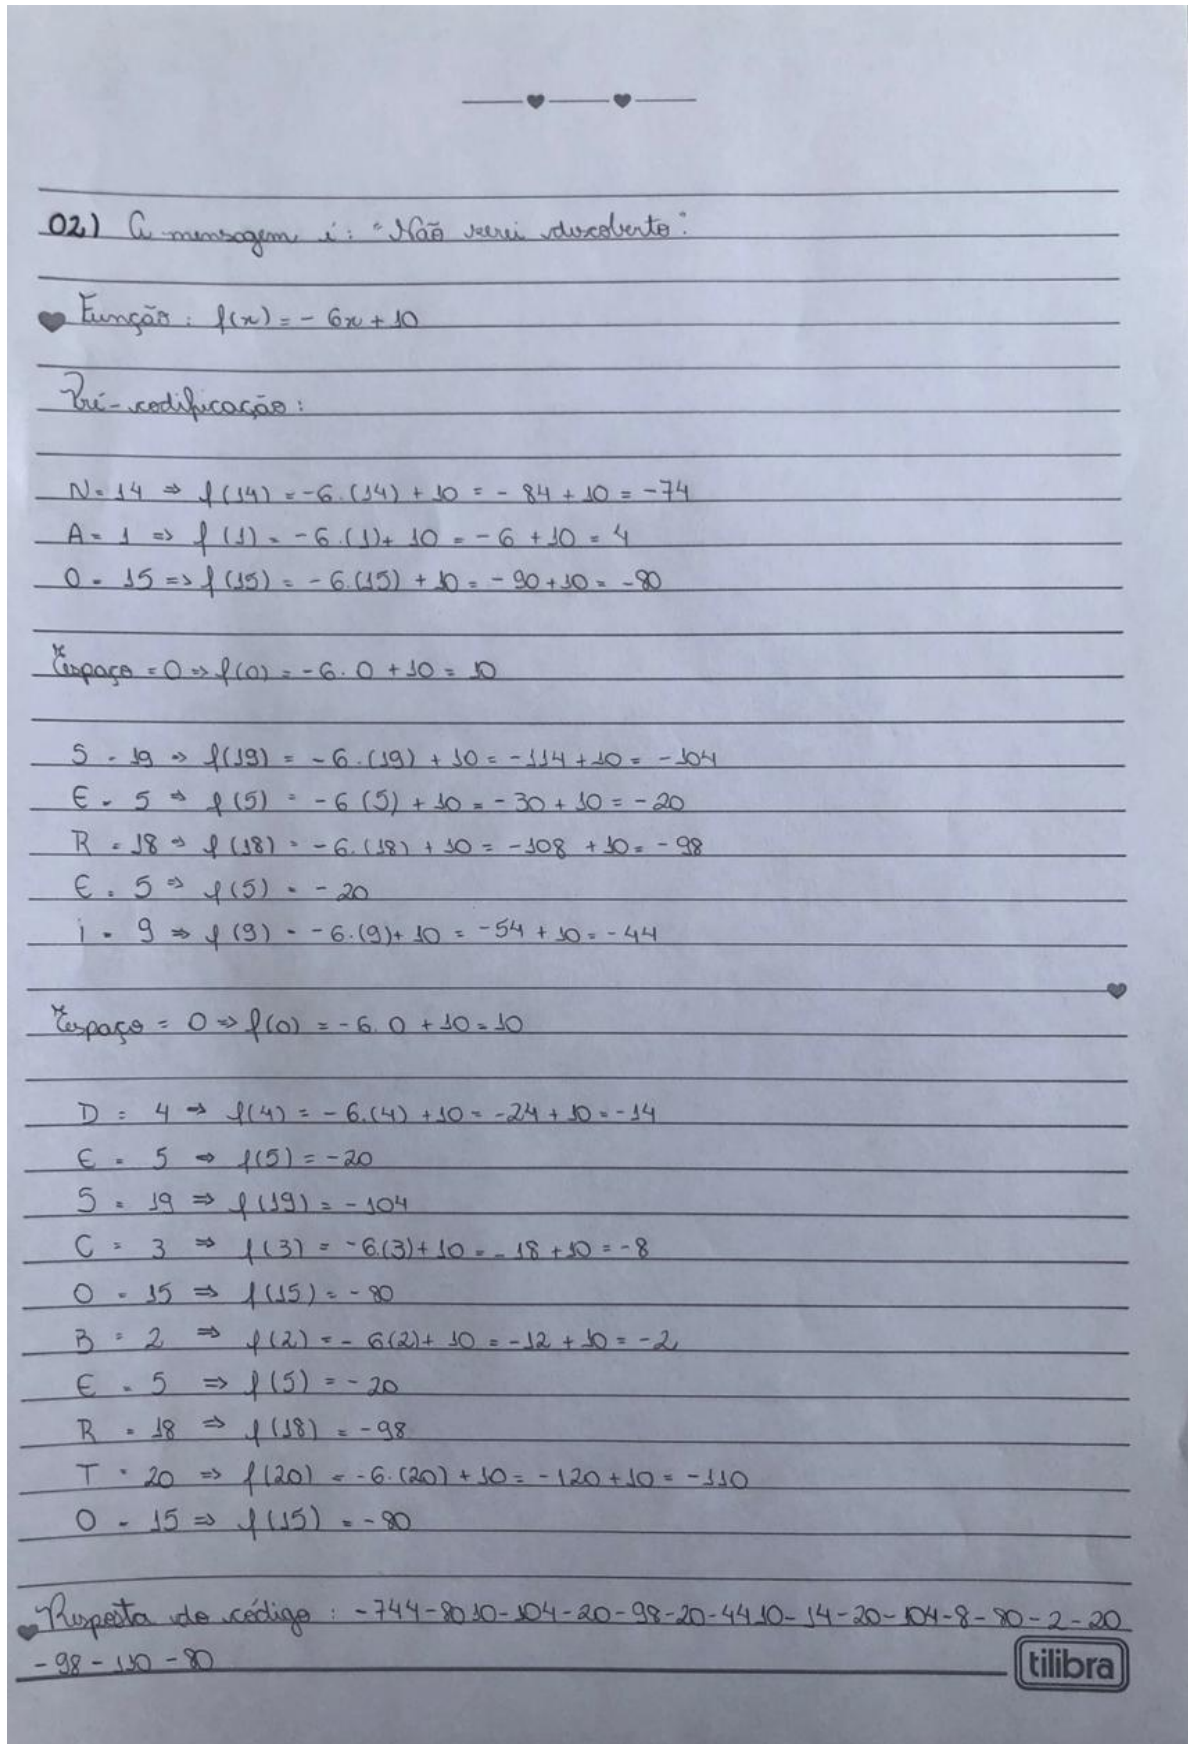 02) A mensagem é: "Não serei descoberto".
Função: f(x) = - 6x + 10
Pré-codificação:
N = 14 ⇒ f(14) = -6.(14) + 10 = - 84 + 10 = -74
A = 1 => f(1) = -6.(1)+ 10 = -6 + 10 = 4
O = 15 => f(15) = -6.(15) + 10 = -90+10 = -80
Espaço = 0 => f(0) = -6.0 + 10 = 10
S = 19 => f(19) = -6.(19) + 10 = -114+10 = -104
E = 5 => f(5) = -6(5) + 10 = -30 + 10 = -20
R = 18 => f(18) = -6.(18) + 10 = -108 + 10 = -98
E = 5 => f(5) = -20
i = 9 => f(9) = -6.(9)+ 10 = -54 + 10 = -44
Espaço = 0 => f(0) = -6.0 + 10 = 10
D = 4 => f(4) = -6.(4) + 10 = -24 + 10 = -14
E = 5 => f(5) = -20
S = 19 => f(19) = -104
C = 3 => f(3) = -6.(3)+ 10 = -18 +10 = -8
O = 15 => f(15) = -80
B = 2 => f(2) = -6(2)+ 10 = -12 + 10 = -2
E = 5 => f(5) = -20
R = 18 => f(18) = -98
T = 20 => f(20) = -6.(20) + 10 = -120 + 10 = -110
O = 15 => f(15) = -80
Resposta do código: -744-8010-104-20-98-20-4410-14-20-104-8-80-2-20
-98-110-80
tilibra